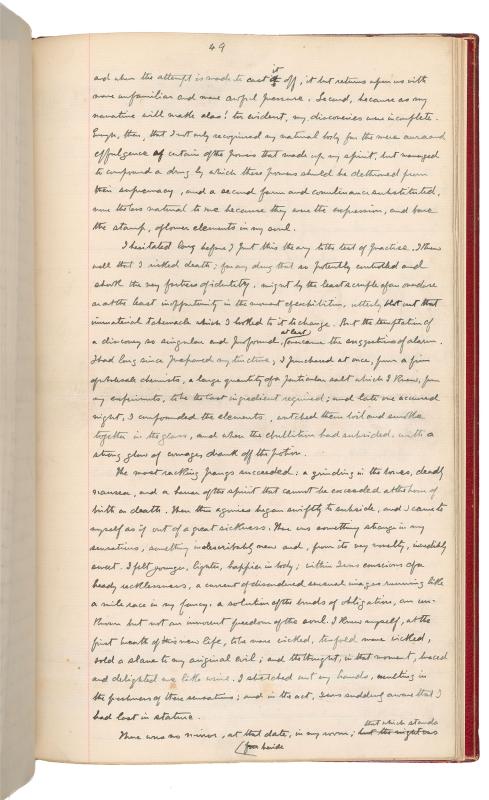 49
and when the attempt is made to cast it off, it but returns upon us with
more unfamiliar and more awful pressure. Second, because as my
narrative will make alas! too evident, my discoveries were incomplete.
Enough, then, that I not only recognised my natural body for the mere aura and
effulgence of certain of the powers that made up my spirit, but managed
to compound a drug by which these powers should be dethroned from
their supremacy, and a second form and countenance substituted,
none the less natural to me because they were the expression, and bore
the stamp, of lower elements in my soul.
I hesitated long before I put this theory to the test of practice. I knew
well that I risked death; for any drug that so potently controlled and
shook the very fortress of identity, might by the least scruple of an overdose
or at the least inopportunity in the moment of exhibition, utterly blot out that
immaterial tabernacle which I looked to it to change. But the temptation of
a discovery so singular and profound, at last overcame the suggestions of alarm.
I had long since prepared my tincture; I purchased at once, from a firm
of wholesale chemists, a large quantity of a particular salt which I knew, from
my experiments, to be the last ingredient required; and late one accursed
night, I compounded the elements, watched them boil and smoke
together in the glass, and when the ebullition had subsided, with a
strong glow of courage, drank off the potion.
The most racking pangs succeeded: a grinding in the bones, deadly
nausea, and a horror of the spirit that cannot be exceeded at the hour of
birth or death. Then these agonies began swiftly to subside, and I came to
myself as if out of a great sickness. There was something strange in my
sensations, something indescribably new and, from its very novelty, incredibly
sweet. I felt younger, lighter, happier in body; within I was conscious of a
heady recklessness, a current of disordered sensual images running like
a mile race in my fancy, a solution of the bonds of obligation, an un-
known but not an innocent freedom of the soul. I knew myself, at the
first breath of this new life, to be more wicked, tenfold more wicked,
sold a slave to my original evil; and the thought, in that moment, braced
and delighted me like wine. I stretched out my hands, exulting in
the freshness of these sensations; and in the act, I was suddenly aware that I
had lost in stature.
There was no mirror, at that date, in my room; that which stands
beside